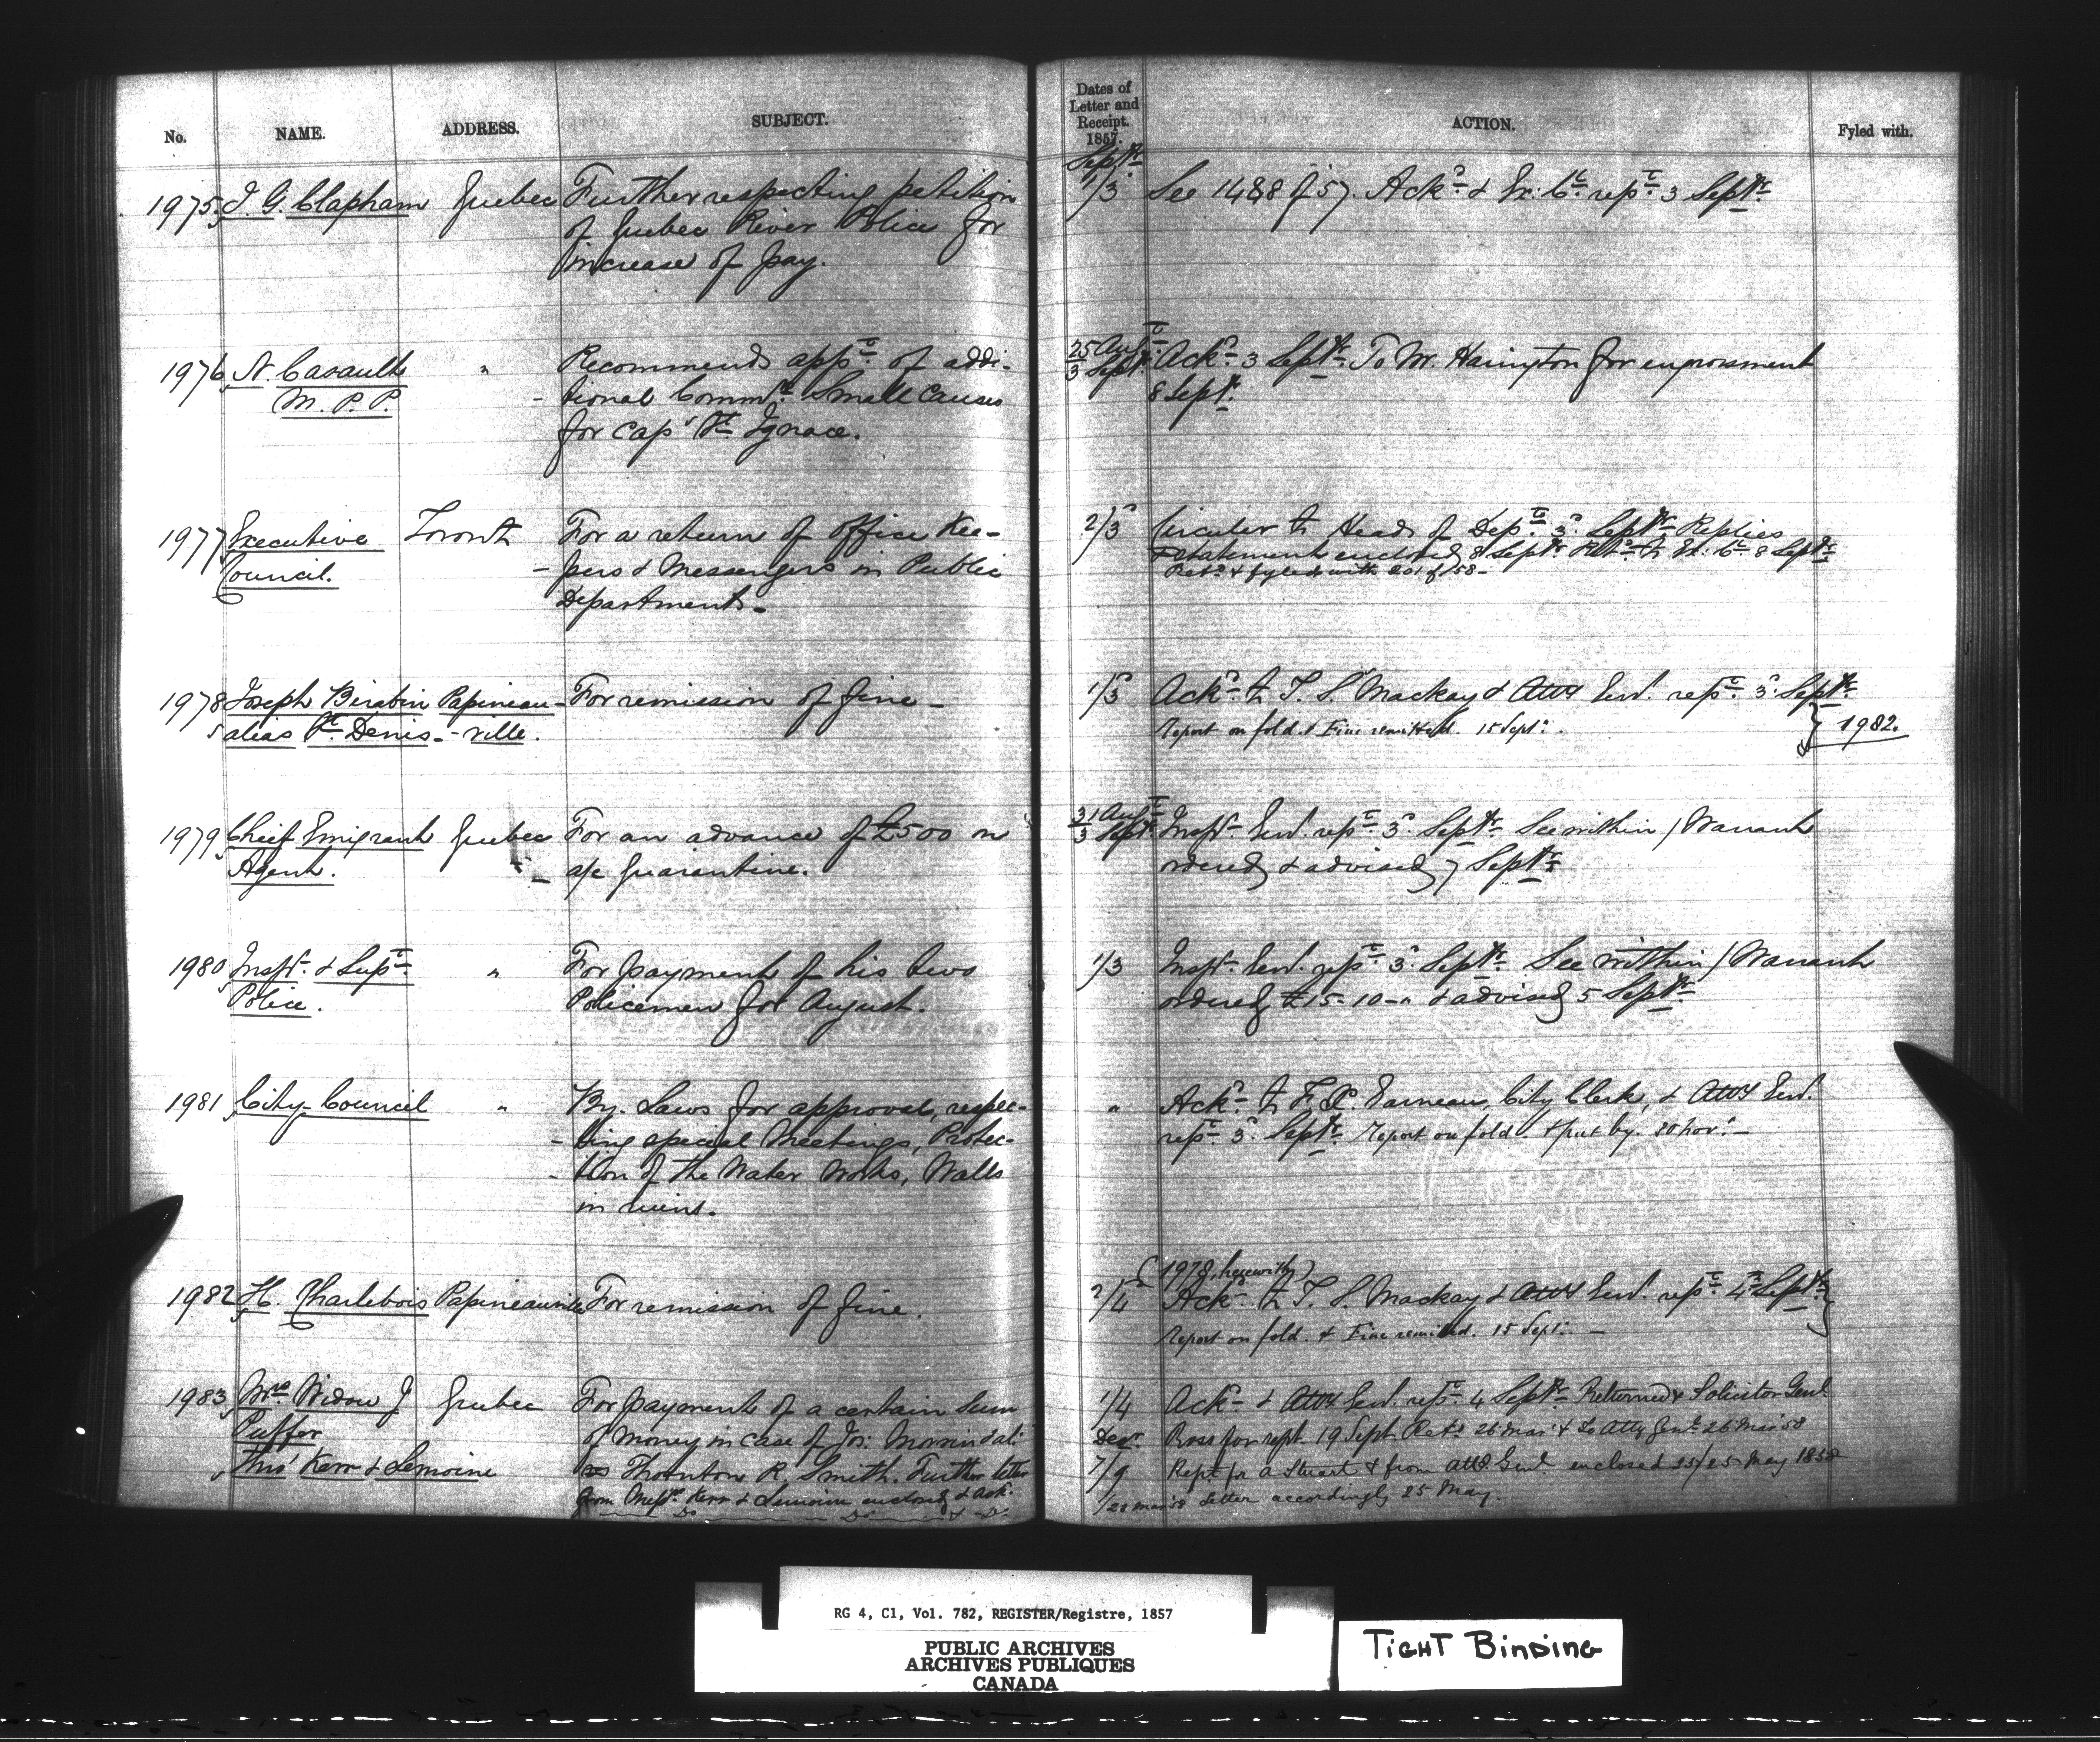 No. NAME. ADDRESS. SUBJECT.
1975 J. G. Clapham Quebec Further respecting petition
of Quebec River Police for
increase of pay.
1976 N. Casault " Recommends appt. of addi-
M. P. P. - tional Commrs. Small Causes
for Cap St. Ignace.
1977 Executive Toronto For a return of Office Kee-
Council. - pers & Messengers in Public
Departments-
1978 Joseph Birabin Papineau- For remission of fine-
alias St. Denis. -ville.
1979 Chief Emigrant Quebec For an advance of £500 on
Agent. a/c Quarantine.
1980 Inspr. & Supt. " For payment of his two
Police. Policemen for August.
1981 City Council " By. Laws for approval, respec-
- ting special Meetings, Protec-
- tion of the Water Works, Walls
in ruins.
1982 H. Charlebois Papineauville For remission of fine.
1983 Mrs. Widow J Quebec For payment of a certain sum
Puffer of money in case of Jos: Morrin
Kerr & Lemoine Thornton R. Smith. Further letter
from Messrs. Kerr & Lemoine enclosed & Ack.
Do Do & Do
Dates of
Letter and
Receipt.
1857.
ACTION. Fyled with.
Septr.
1/3 See 1488 of 57. Ackd. & Ex: Cl. rept. 3 Septr.
25 Augt.
3 Septr. Ackd. 3 Septr. To Mr. Harington for engrossment
8 Sept.
2/3 Circular to Heads of Depts. 3d. Septr. Replies
& statement enclosed 8 Septr. Retd. to Ex: Cl. 8 Septr.
Retd. & fyled with 201 of 58-
1/3 Ackd. to T. S. Mackay & Atty Genl. rept. 3d. Septr.
Report on fold. & Fine remitted. 15 Sept. } 1982.
31 Augt.
3 Septr. Inspr. Genl. rept. 3d. Septr. See within / Warrant
ordered & advised 7 Septr.
1/3 Inspr. Genl. rept. 3d. Septr. See within / Warrant
ordered £15-10-" & advised 5 Septr.
" Ackd. to F. X. Garneau, City Clerk, & Atty Genl.
rept. 3d. Septr. Report on fold. & put by. 20 Novr.-
(1978, herewith)
2/4 Ackd. to T. S. Mackay & Atty Genl. rept. 4th Septr.
Report on fold. & Fine remitted. 15 Sept.-
1/4 Ackd. & Atty Genl. rept. 4 Septr. Returned & Solicitor Genl.
Decr. Ross for rept. 19 Sept. Retd. 26 Mar & to Atty Genl. 26 Mar 58
7/9 Rept. for A Stuart & from Atty. Genl. enclosed 25/25 May 1858
/22 Mar 58 Letter accordingly 25 May.
RG 4, C1, Vol. 782, REGISTER/Registre, 1857
PUBLIC ARCHIVES
ARCHIVES PUBLIQUES
CANADA
TIGHT BINDING